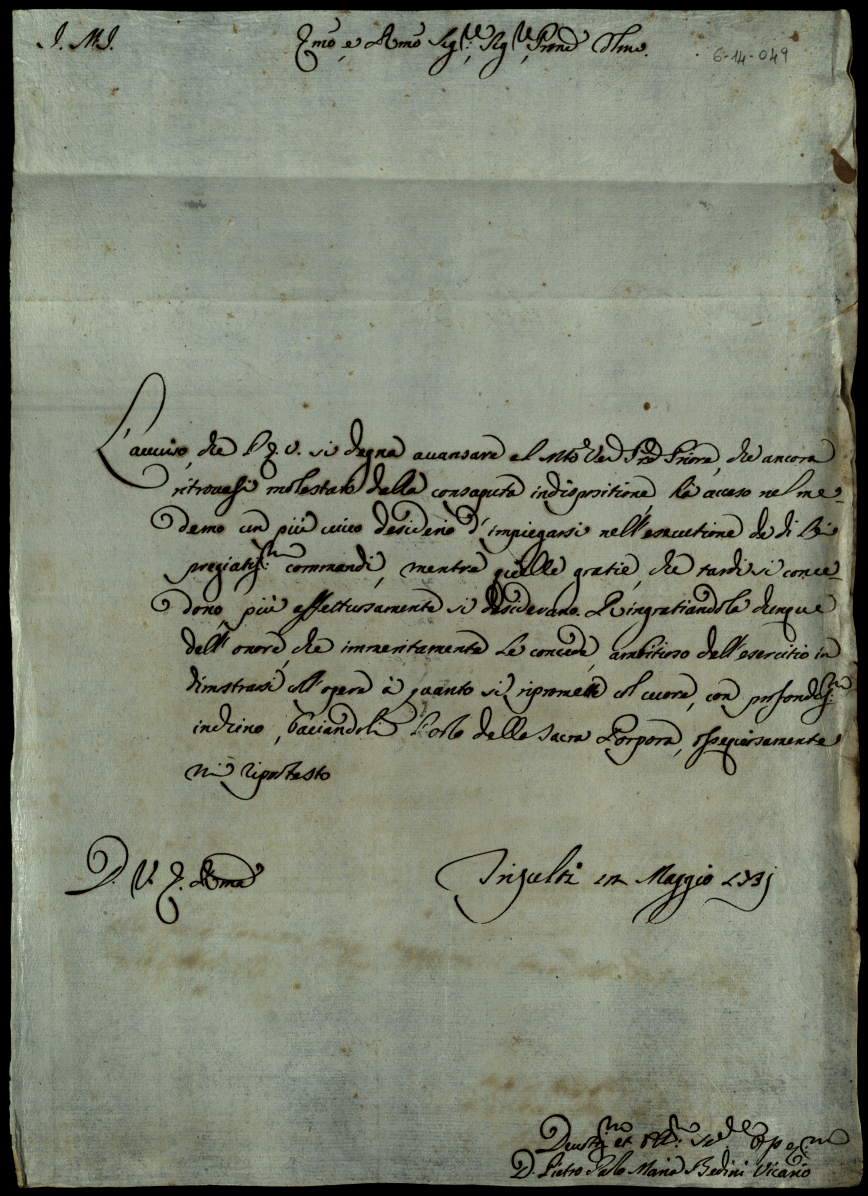 J. M. J.
Emo, e Rmo Sig.re, Sig.re Prone Clmo.
6-14-049
L'avviso, che V. E. si degna avansare al Nro Ven. Pre Priore, che ancora
ritrovasi molestato dalla consaputa indispositione ha acceso nel me-
demo un più vivo desiderio d'impiegarsi nell'esecutione de di Lei
pregiatis.mi commandi, mentre quelle gratie, che tardi si conce-
dono più affettuosamente si desiderano. Ringratiandola dunque
dell'onore, che immeritamente Le concede, ambitioso dell'esercitio in
dimostrarsi coll'opera à quanto si ripromette col cuore, con profondis.mo
inchino, baciandoli l'orlo della Sacra Porpora, ossequiosamente
mi riprotesto
D. V. E. Rma
Trisulti 12 Maggio 1731
Devotis.mo et Obb.mo Ser.re Osseq.mo
D. Pietro Paolo Maria Bedini Vicario